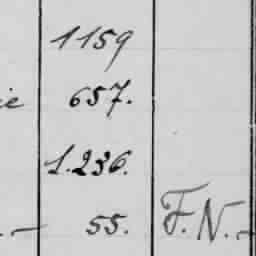 1159
ie 657.
1.236.
. – 55. F. N. –